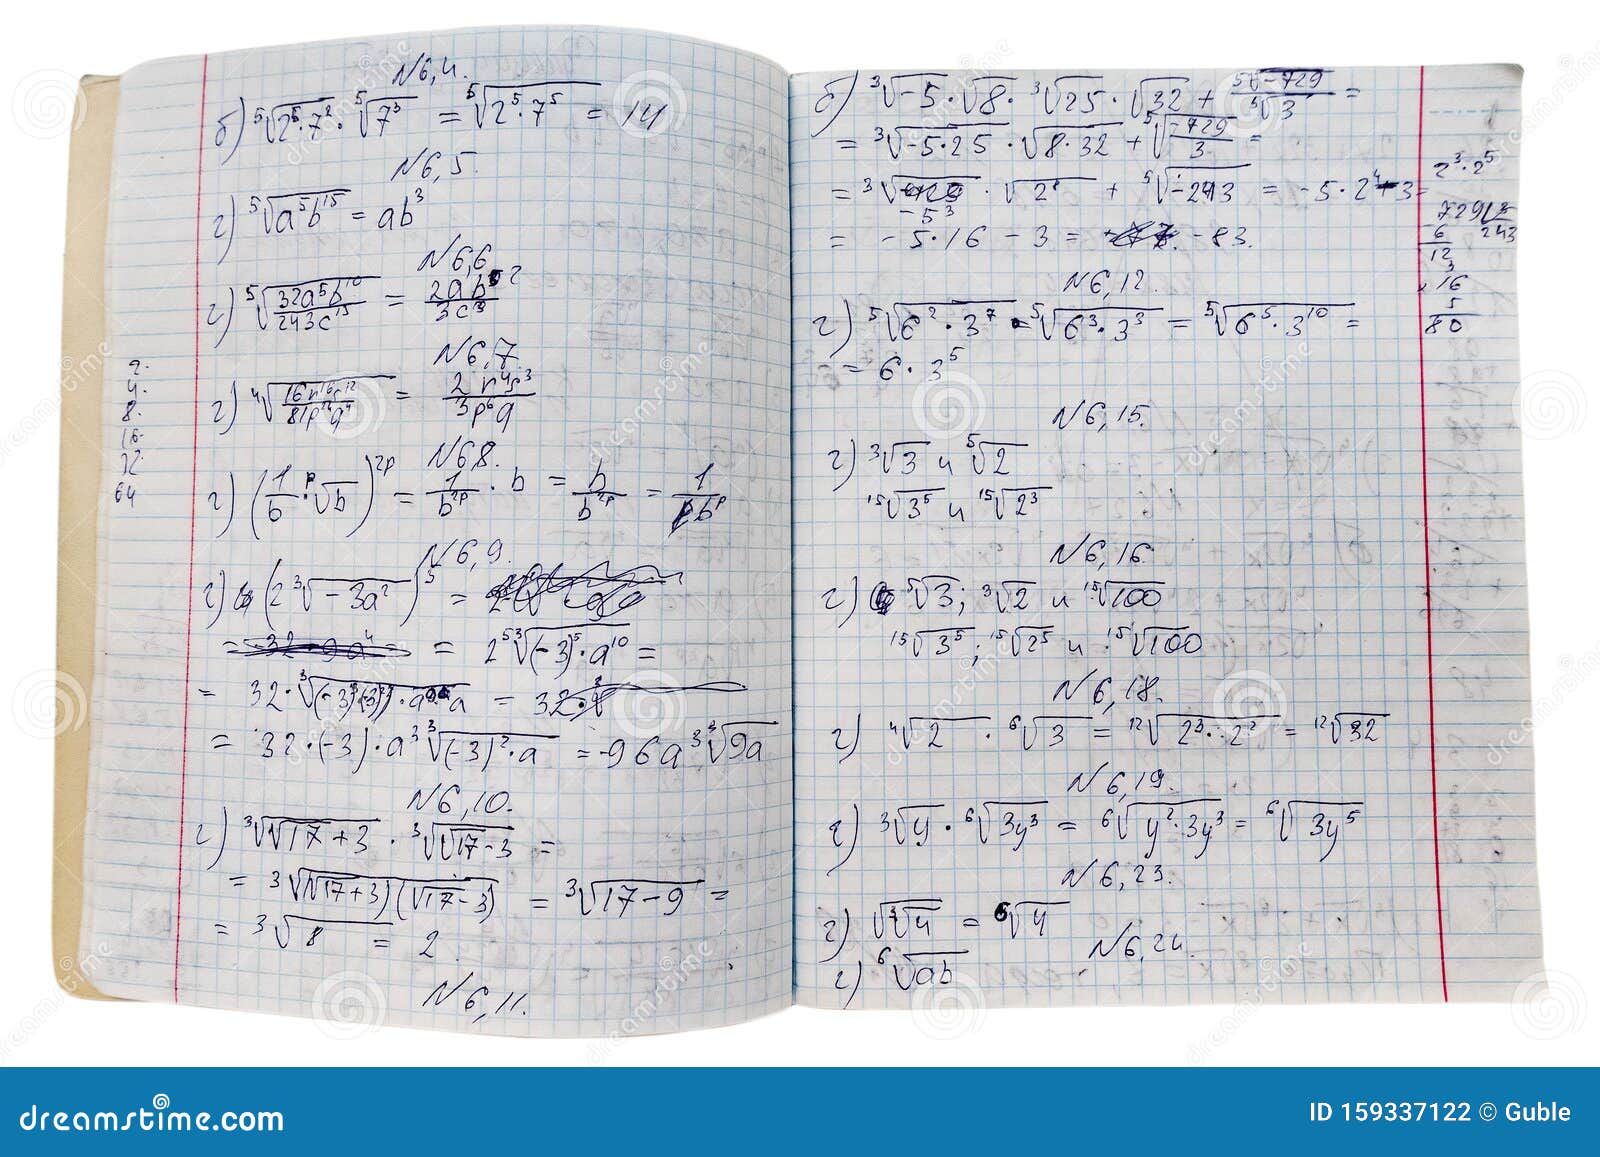 N6,4.
б) ⁵√(2⁵·7²) · ⁵√(7³) = ⁵√(2⁵·7⁵) = 14
N6,5.
г) ⁵√(a⁵b¹⁵) = ab³
N6,6
г) ⁵√(32a⁵b¹⁰/243c¹⁵) = 2ab²/3c³
N6,7.
г) ⁴√(16r¹⁶s¹²/81p²⁴q⁴) = 2r⁴s³/3p⁶q
N6,8.
г) (1/b · ᵖ√b)²ᵖ = 1/b²ᵖ · b = b/b²ᵖ = 1/bᵖ
N6,9.
г) (2 ³√(-3a²))⁵ =
= 2⁵ ³√((-3)⁵·a¹⁰) =
= 32· = 32
= 32·(-3)·a³ ³√((-3)²·a) = -96a³ ³√(9a)
N6,10.
г) ³√(√17+3) · ³√(√17-3) =
= ³√((√17+3)(√17-3)) = ³√(17-9) =
= ³√8 = 2
N6,11.
2.
4.
8.
16.
32.
64
б) ³√-5 · √8 · ³√25 · √32 + ⁵√-729/⁵√3 =
= ³√(-5·25) · √(8·32) + ⁵√(-729/3) =
= ³√(-5³) · √(2⁸) + ⁵√-243 = -5·2⁴-3=
= -5·16 - 3 = -83.
N6,12.
г) ⁵√(6²·3⁷) · ⁵√(6³·3³) = ⁵√(6⁵·3¹⁰) =
= 6·3⁵
N6,15.
г) ³√3 и ⁵√2
¹⁵√(3⁵) и ¹⁵√(2³)
N6,16.
г) ⁵√3; ³√2 и ¹⁵√100
¹⁵√(3⁵); ¹⁵√(2⁵) и ¹⁵√100
N6,18.
г) ⁴√2 · ⁶√3 = ¹²√(2³·2²) = ¹²√32
N6,19.
г) ³√y · ⁶√(3y³) = ⁶√(y²·3y³) = ⁶√(3y⁵)
N6,23.
г) √(³√4) = ⁶√4
N6,24.
г) ⁶√(ab)
2³·2⁵
729 | 3
6 243
12
3
16
5
80
dreamstime.com
ID 159337122 © Guble